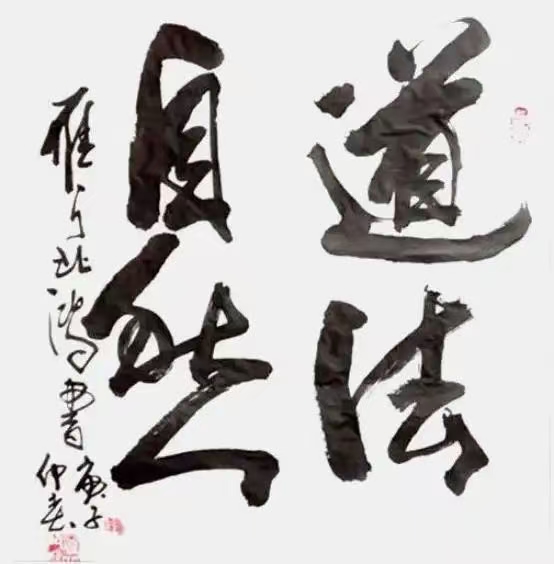 道法
自然
雁北鸿书
庚子
仲春